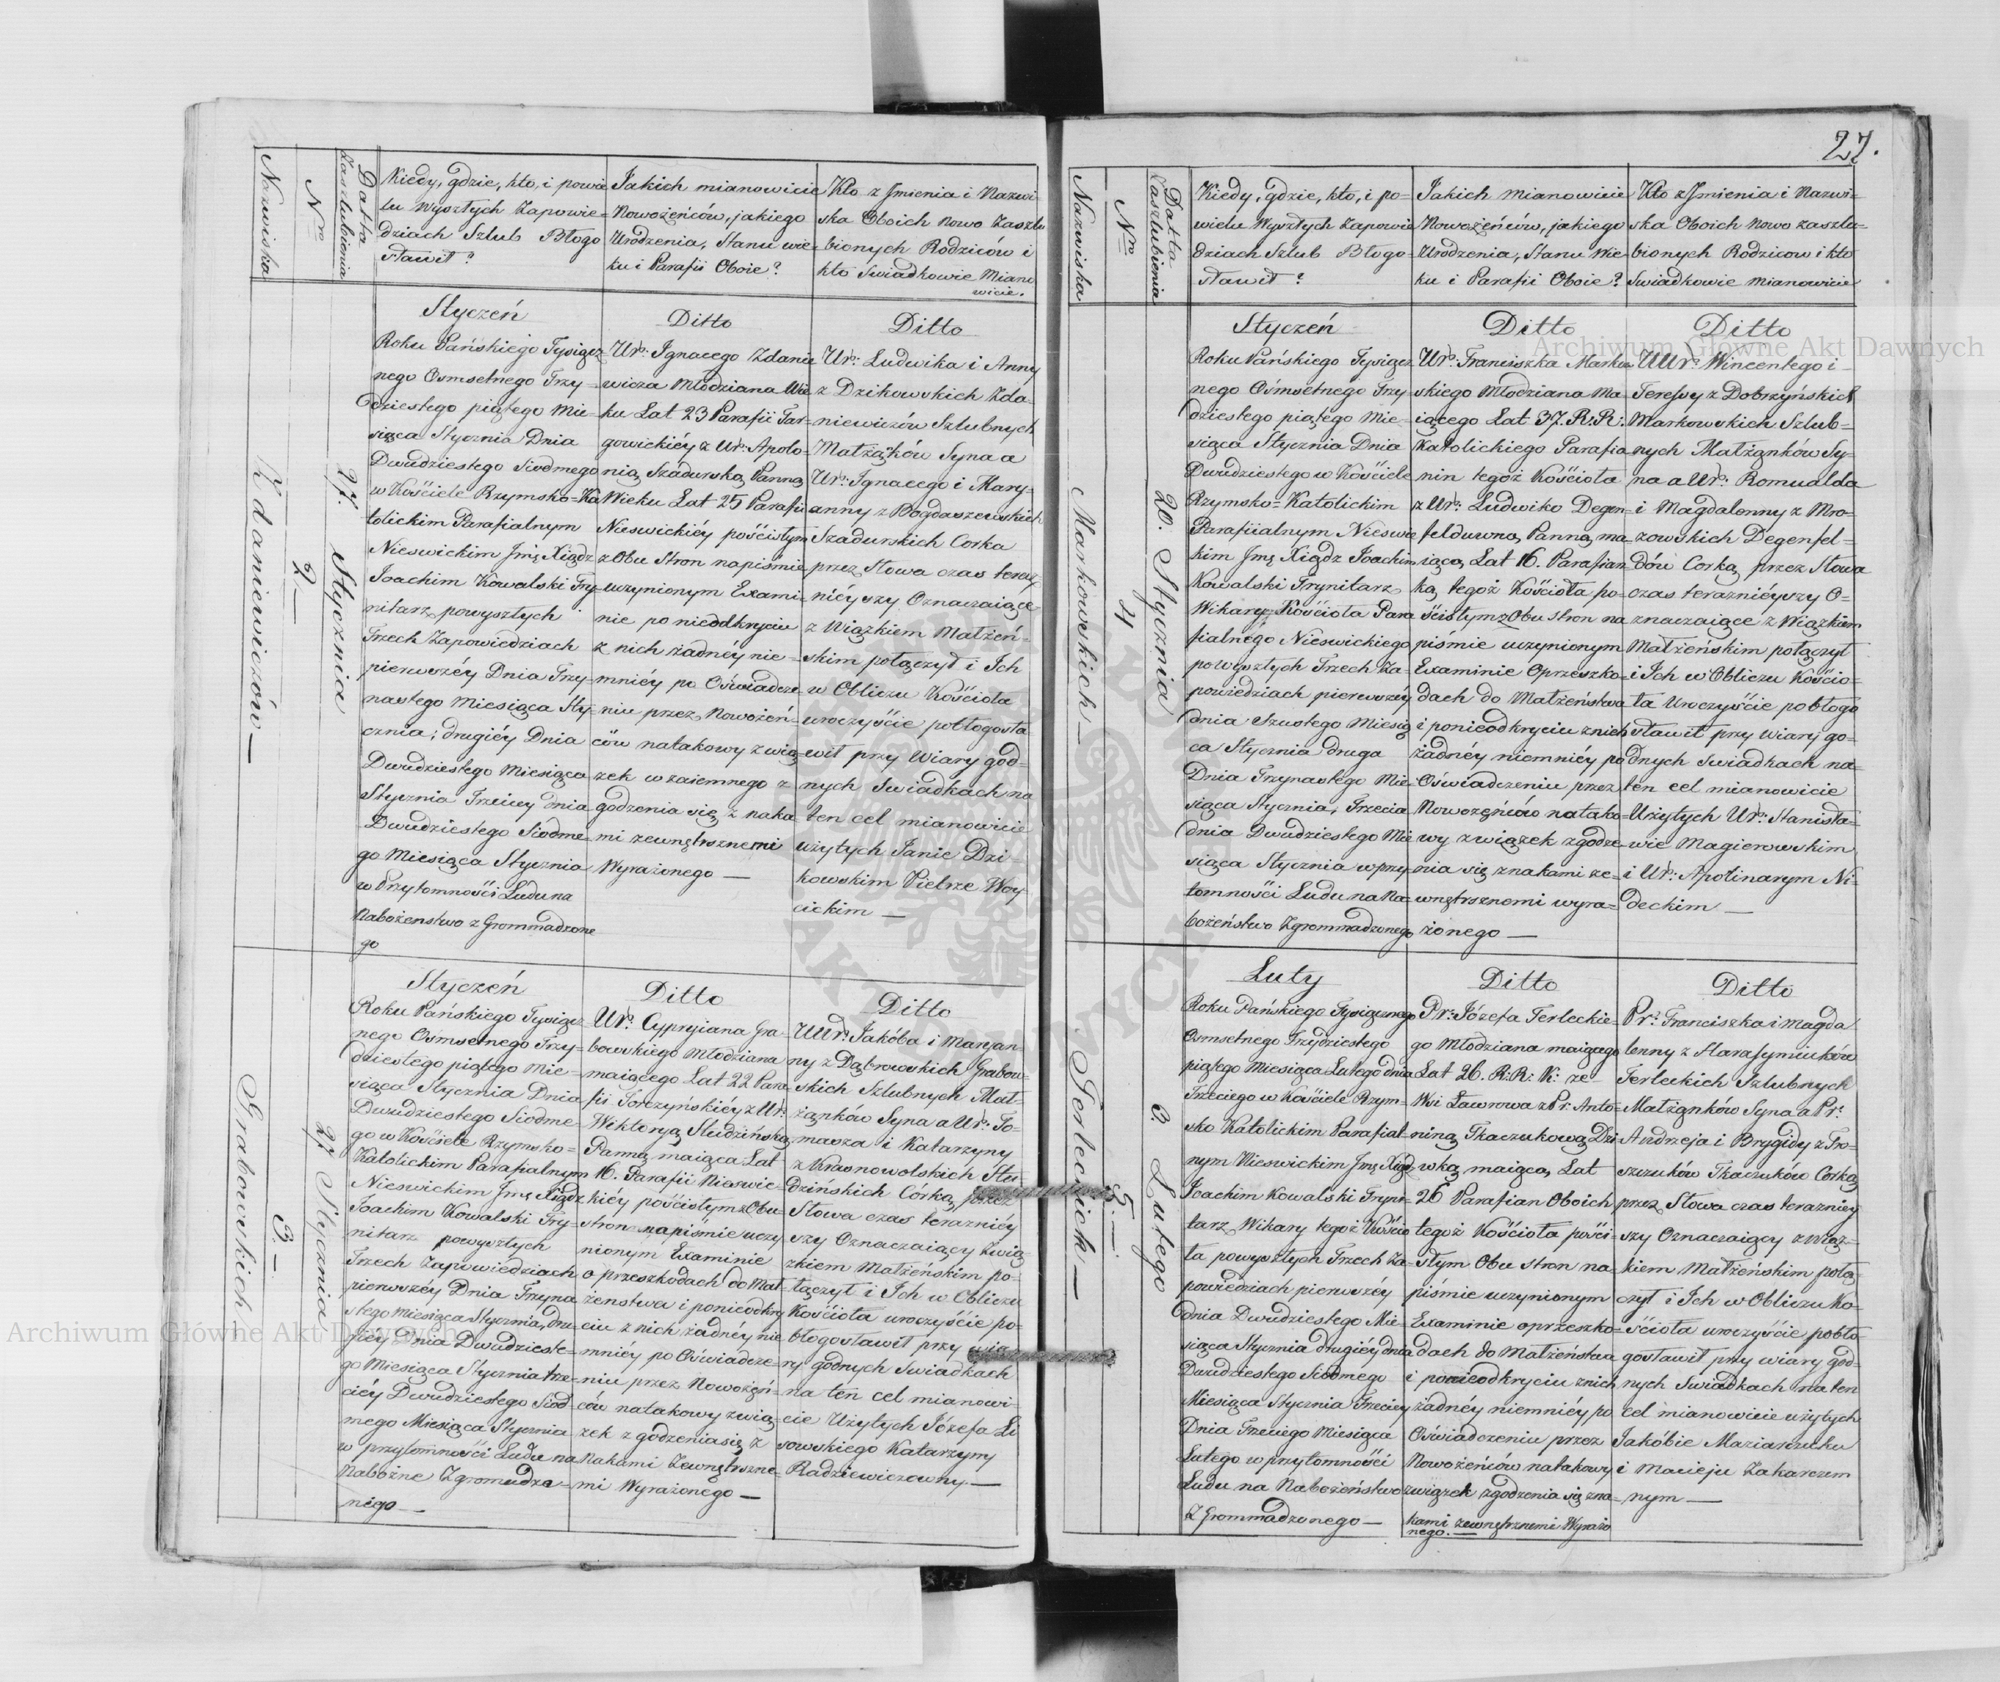 27.
Nazwiska
Nro
Datta
Zaslubienia
Kiedy, gdzie, kto, i powie
lu wyszłych Zapowie-
dziach Szlub Błogo
sławił?
Jakich mianowicie
Nowożeńców, jakiego
Urodzenia, Stanu wie
ku i Parafii Oboie?
Kto z Jmienia i Nazwi-
ska Oboich nowo Zaszlu
bionych Rodziców i
kto Swiadkowie Miano
wicie.
Zdaniewiczów —
2 —
27. Stycznia
Styczeń
Roku Pańskiego Tysiącz-
nego Osmsetnego Trzy-
dziestego piątego Mie-
siąca Stycznia Dnia
Dwudziestego Siodmego
w Kościele Rzymsko-Ka
tolickim Parafialnym
Nieswickim Jmę Xiądz
Joachim Kowalski Try-
nitarz, powyszłych
Trzech Zapowiedziach
pierwszéy Dnia Trzy-
nastego Miesiąca Sty-
cznia; drugiéy Dnia
Dwudziestego Miesiąca
Stycznia Trzeciey dnia
Dwudziestego Siodme-
go Miesiąca Stycznia
w Przytomności Ludu na
Nabożenstwo z Grommadzone
go
Ditto
Ur: Ignacego Zdanie
wicza Młodziana Wie
ku Lat 23 Parafii Tar-
gowickiéy z Ur: Apolo-
nią Szadurską Panną
Wieku Lat 25 Parafii
Nieswickiéy pościsłym
z Obu Stron na piśmie
uczynionym Exami-
nie po nieodkryciu
z nich żadnéy nie-
mniéy po Oświadcze
niu przez Nowożeń-
ców natakowy zwią-
zek wzaiemnego z-
godzenia się z naka
mi zewnętrznemi
Wyrażonego —
Ditto
Ur: Ludwika i Anny
z Dzikowskich Zda-
niewiczów Szlubnych
Małżąków Syna a
Ur: Ignacego i Mary-
anny z Bogdaszewskich
Szadurskich Corka
przez Słowa czas teraz
niéyszy Oznaczaiące
z Wiązkiem Małżeń-
skim połączył i Ich
w Obliczu Kościoła
uroczyście pobłogosła
wił przy Wiary god-
nych Swiadkach na
ten cel mianowicie
użytych Janie Dzi-
kowskim Pietrze Woy
cickim —
Grabowskich
3. —
27 Stycznia
Styczeń
Roku Pańskiego Tysiącz-
nego Osmsetnego Trzy-
dziestego piątego Mie-
siąca Stycznia Dnia
Dwudziestego Siodme-
go w Kościele Rzymsko-
Katolickim Parafialnym
Nieswickim Jmę Xiądz
Joachim Kowalski Try-
nitarz powyszłych
Trzech Zapowiedziach
pierwszéy Dnia Trzyna
stego Miesiąca Stycznia, dru-
giéy Dnia Dwudzieste-
go Miesiąca Stycznia trze-
ciéy Dwudziestego Siod-
mego Miesiąca Stycznia
w przytomności Ludu na
Nabożne Zgromadzo-
nego —
Ditto
Ur: Cypryiana Gra-
bowskiego Młodziana
maiącego Lat 22 Para-
fii Torczyńskiéy z Ur:
Wiktoryą Studzińską
Panną maiąca Lat
16. Parafii Nieswic-
kiéy pościsłym z Obu
stron na piśmie uczy
nionym Examinie
o przeszkodach do Mał-
żenstwa i ponieodkry
ciu z nich żadnéy nie
mniey po Oświadcze-
niu przez Nowożęń-
ców natakowy zwią-
zek z godzenia się z
nakami Zewnętrzne-
mi Wyrażonego —
Ditto
UUr: Jakóba i Maryan-
ny z Dąbrowskich Grabow-
skich Szlubnych Mał-
żąnków Syna a Ur: To-
masza i Katarzyny
z Krasnowolskich Stu-
dzińskich Córką, przez
Słowa czas teraznióy
szy Oznaczaiący Zwią
zkiem Małżeńskim po-
łączył i Ich w Obliczu
Kościoła uroczyście po-
błogosławił przy wia
ry godnych Swiadkach
na ten cel mianowi-
cie Użytych Józefa Li
sowskiego Katarzyny
Radziewiczowny —
Nazwiska
Nro
Datta
Zaszlubienia
Kiedy, gdzie, kto, i po-
wielu Wyszłych Zapowie
dziach Szlub Błogo-
sławił?
Jakich mianowicie
Nowożeńców, jakiego
Urodzenia, Stanu Wie
ku i Parafii Oboie?
Kto z Jmienia i Nazwi-
ska Oboich nowo zaszlu-
bionych Rodzicow i kto
Swiadkowie mianowicie
Markowskich —
4
20. Stycznia
Styczeń
Roku Pańskiego Tysiącz
nego Ośmsetnego Trzy
dziestego piątego Mie-
siąca Stycznia Dnia
Dwudziestego w Kościele
Rzymsko-Katolickim
Parafiialnym Nieswic
kim Jmę Xiądz Joachim
Kowalski Trynitarz
Wikary Kościoła Para
fialnego Nieswickiego
powyszłych Trzech Za-
powiedziach pierwszéy
dnia Szustego Miesią
ca Stycznia druga
Dnia Trzynastego Mie-
siąca Stycznia, Trzecia
dnia Dwudziestego Mie
siąca Stycznia w przy
tomności Ludu na Na-
bożeństwo Zgrommadzonego
Ditto
Ur: Franciszka Marko
skiego Młodziana Ma-
iącego Lat 37. R: R:
Katolickiego Parafia
nin tegoż Kościoła
z Ur: Ludwiko Degen-
feldowną, Panną, ma-
iącą Lat 16. Parafian
ką tegoż Kościoła po-
ścisłym z Obu stron na
piśmie uczynionym
Examinie Oprzeszko-
dach do Małżeństwa
i ponieodkryciu z nich
żadnéy niemniéy po
Oświadczeniu przez
Nowożęńców natako-
wy związek zgodze-
nia się znakami ze-
wnętrznomi wyra-
żonego —
Ditto
UUr: Wincentego i-
Teressy z Dobrzyńskich
Markowskich Szlub-
nych Małżąnków Sy-
na a Ur: Romualda
i Magdalenny z Mro-
zowskich Degenfel-
dów Corką, przez Słowa
czas teraznióyszy O-
znaczaiące z Wiązkiem
Małżeńskim połączył
i Ich w Obliczu Kościo-
ła Uroczyście pobłogo
sławił przy Wiary go-
dnych Swiadkach na-
ten cel mianowicie
Użytych Ur: Stanisła-
wie Magierowskim
i Ur: Apolinarym Ni-
deckim —
Terleckich —
5. —
3. Lutego
Luty
Roku Pańskiego Tysiącznego
Osmsetnego Trzydziestego
piątego Miesiąca Lutego dnia
Trzeciego w Kościele Rzym-
sko Katolickim Parafial-
nym Nieswickim Jmę Xiądz
Joachim Kowalski Tryni-
tarz, Wikary tegoż Kościo
ła powyszłych Trzech Za-
powiedziach pierwszéy
dnia Dwudziestego Mie-
siąca Stycznia drugiéy dnia
Dwudziestego Siodmego
Miesiąca Stycznia Trzeciey
Dnia Trzeciego Miesiąca
Lutego w przytomności
Ludu na Nabożeństwo
Z Grommadzonego —
Ditto
Pr: Józefa Terleckie-
go Młodziana maiącego
Lat 26. R: R: K: ze-
Wsi Ławrowa z Pr: Anto-
niną Tkaczukową Dzi
wką, maiącą, Lat
26 Parafian Oboich
tegoż Kościoła pości-
słym Obu stron na-
piśmie uczynionym
Examinie oprzeszko-
dach do Małżeństwa
i ponieodkryciu z nich
żadnéy niemniéy po
Oświadczeniu przez
Nowożeńców natakowy
związek zgodzenia się zna-
kami zewnętrznemi Wyrażo
nego. —
Ditto
Pr: Franciszka i Magda
lenny z Harasymiuków
Terleckich Szlubnych
Małżąnków Syna a Pr:
Andrzeja i Brygidy z Tro-
szczuków Tkaczuków Corką,
przez Słowa czas teraznićy
szy Oznaczaiący zwiąż-
kiem Małżeńskim połą-
czył i Ich w Obliczu Ko-
ścioła uroczyście pobło-
gosławił przy wiary god-
nych Swiadkach na ten
cel mianowicie użytych
Jakóbie Maziarczuku
i Macieju Zakarczem
nym —
Archiwum Główne Akt Dawnych
Archiwum Główne Akt Dawnych